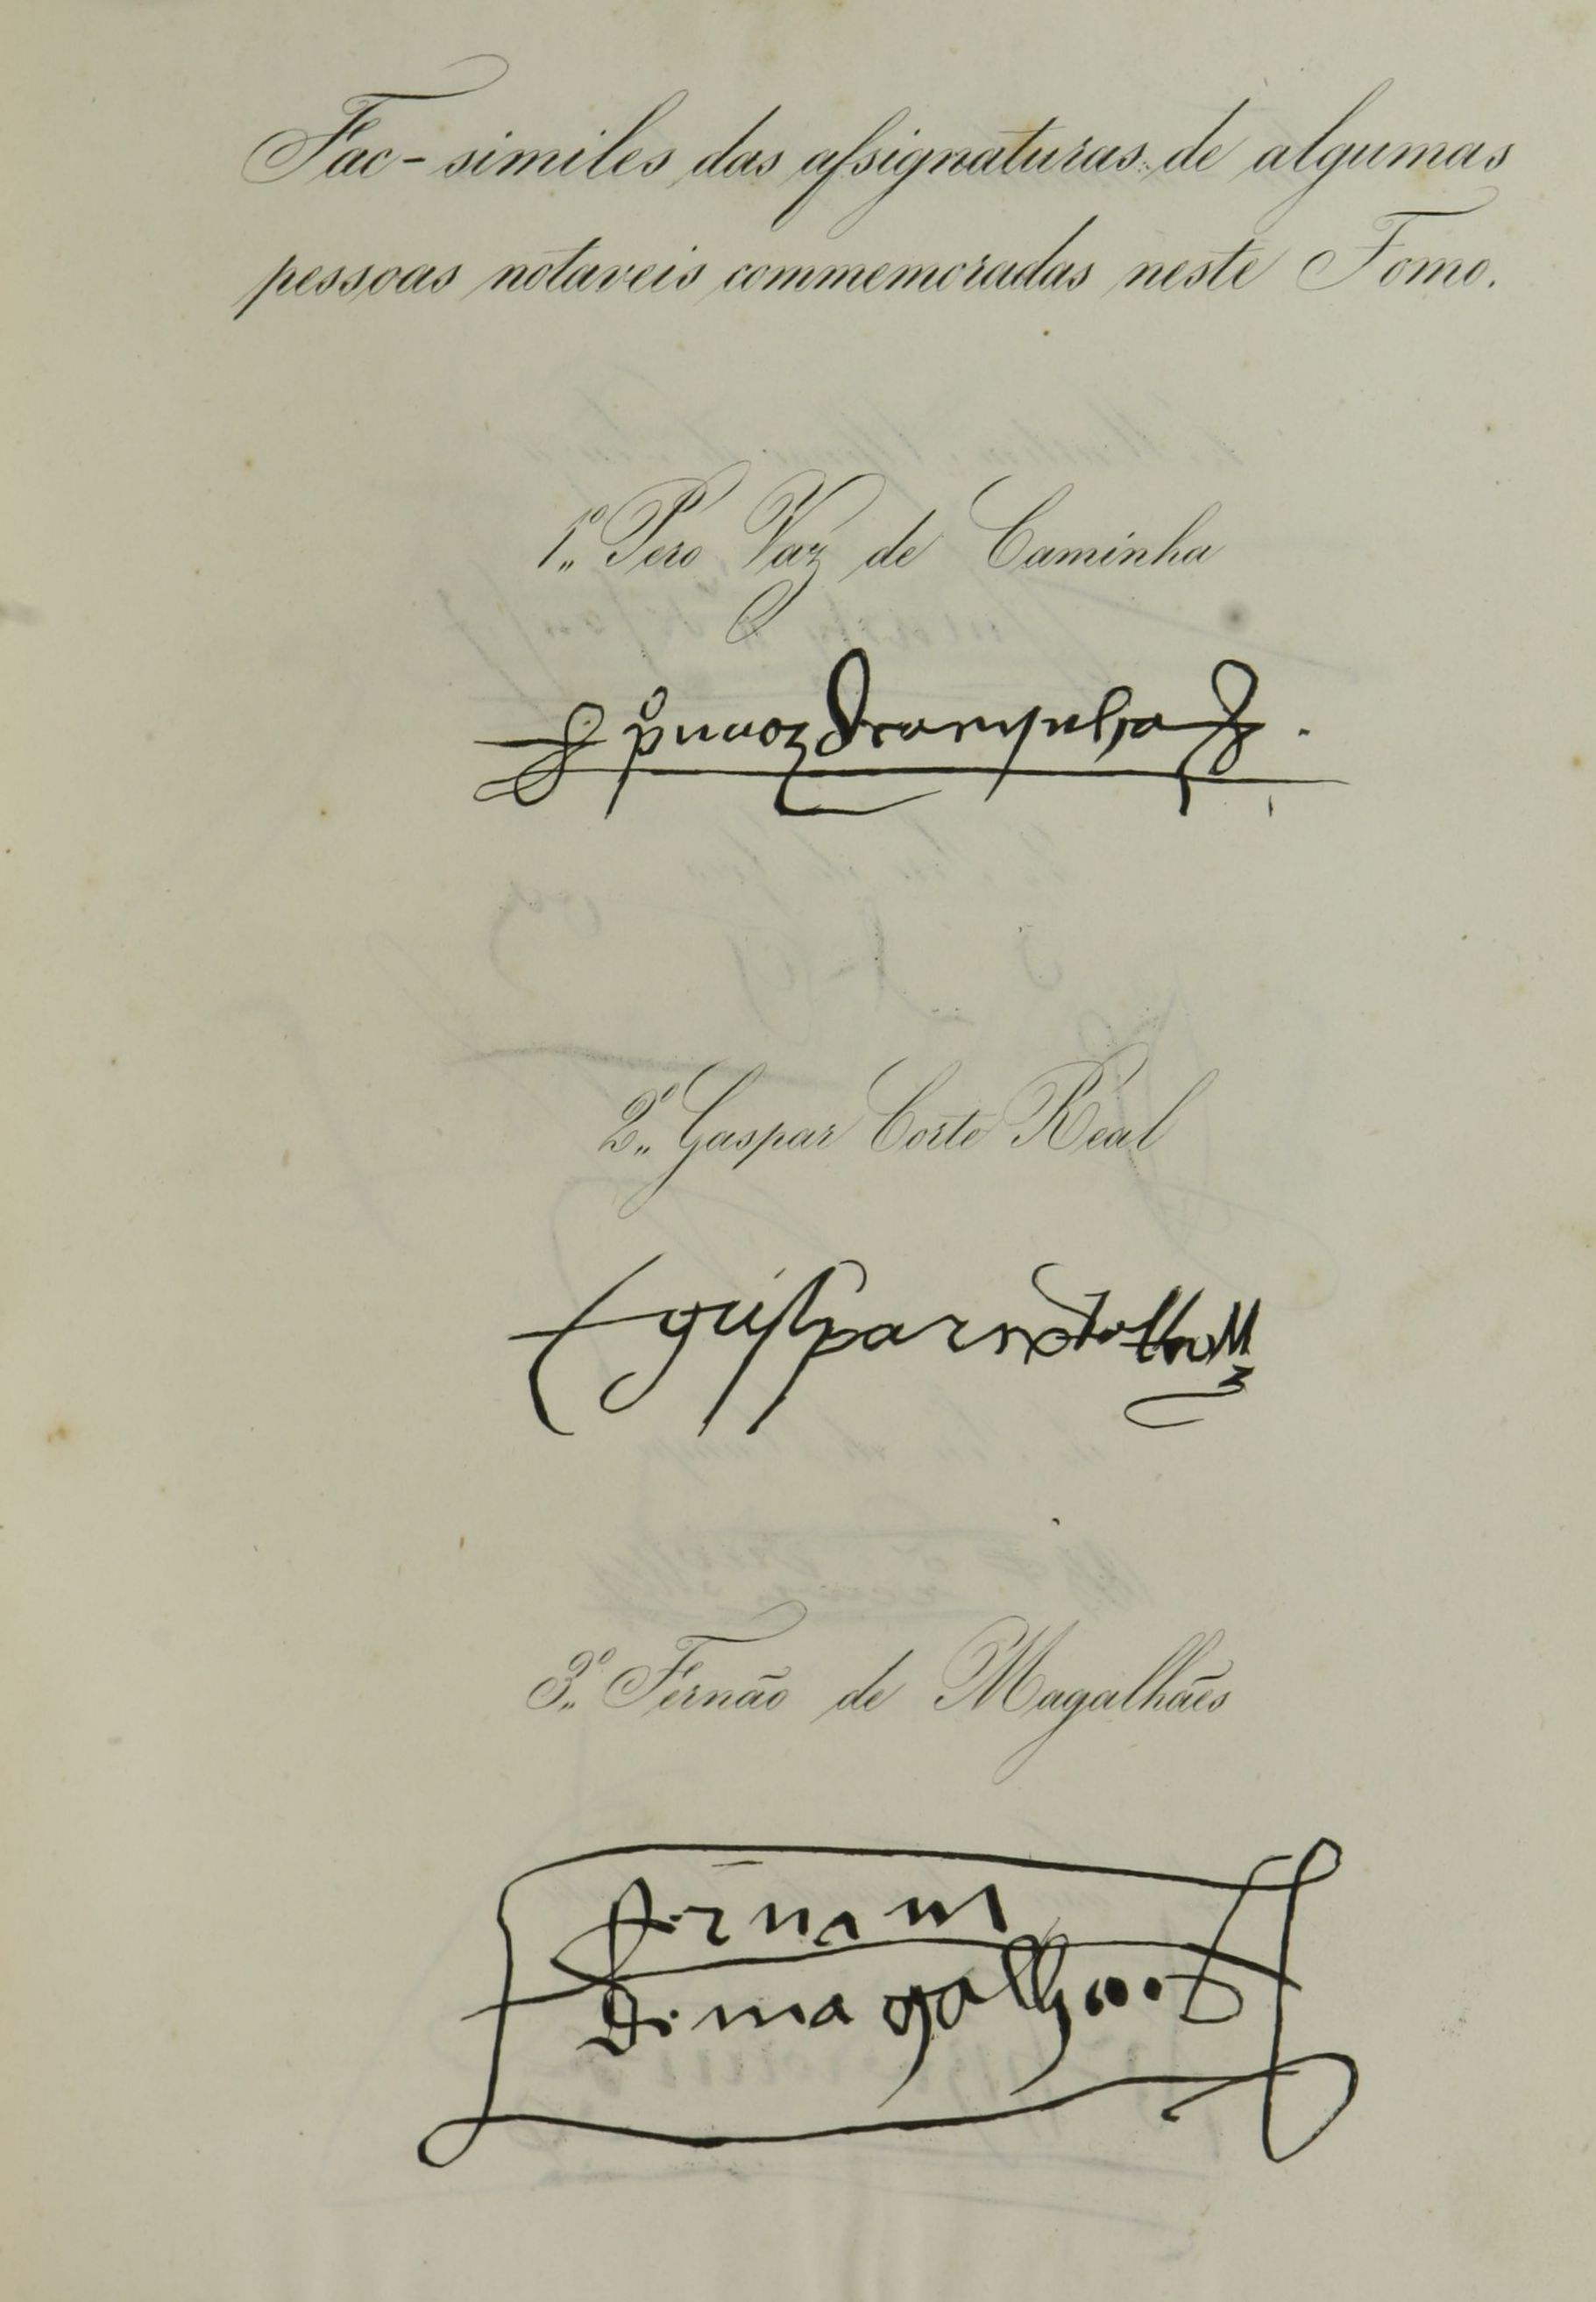 Fac-similes das assignaturas de algumas
pessoas notaveis commemoradas neste Tomo.
1º Pero Vaz de Caminha
2º Gaspar Corte Real
3º Fernão de Magalhães
fernam
de magalhaes